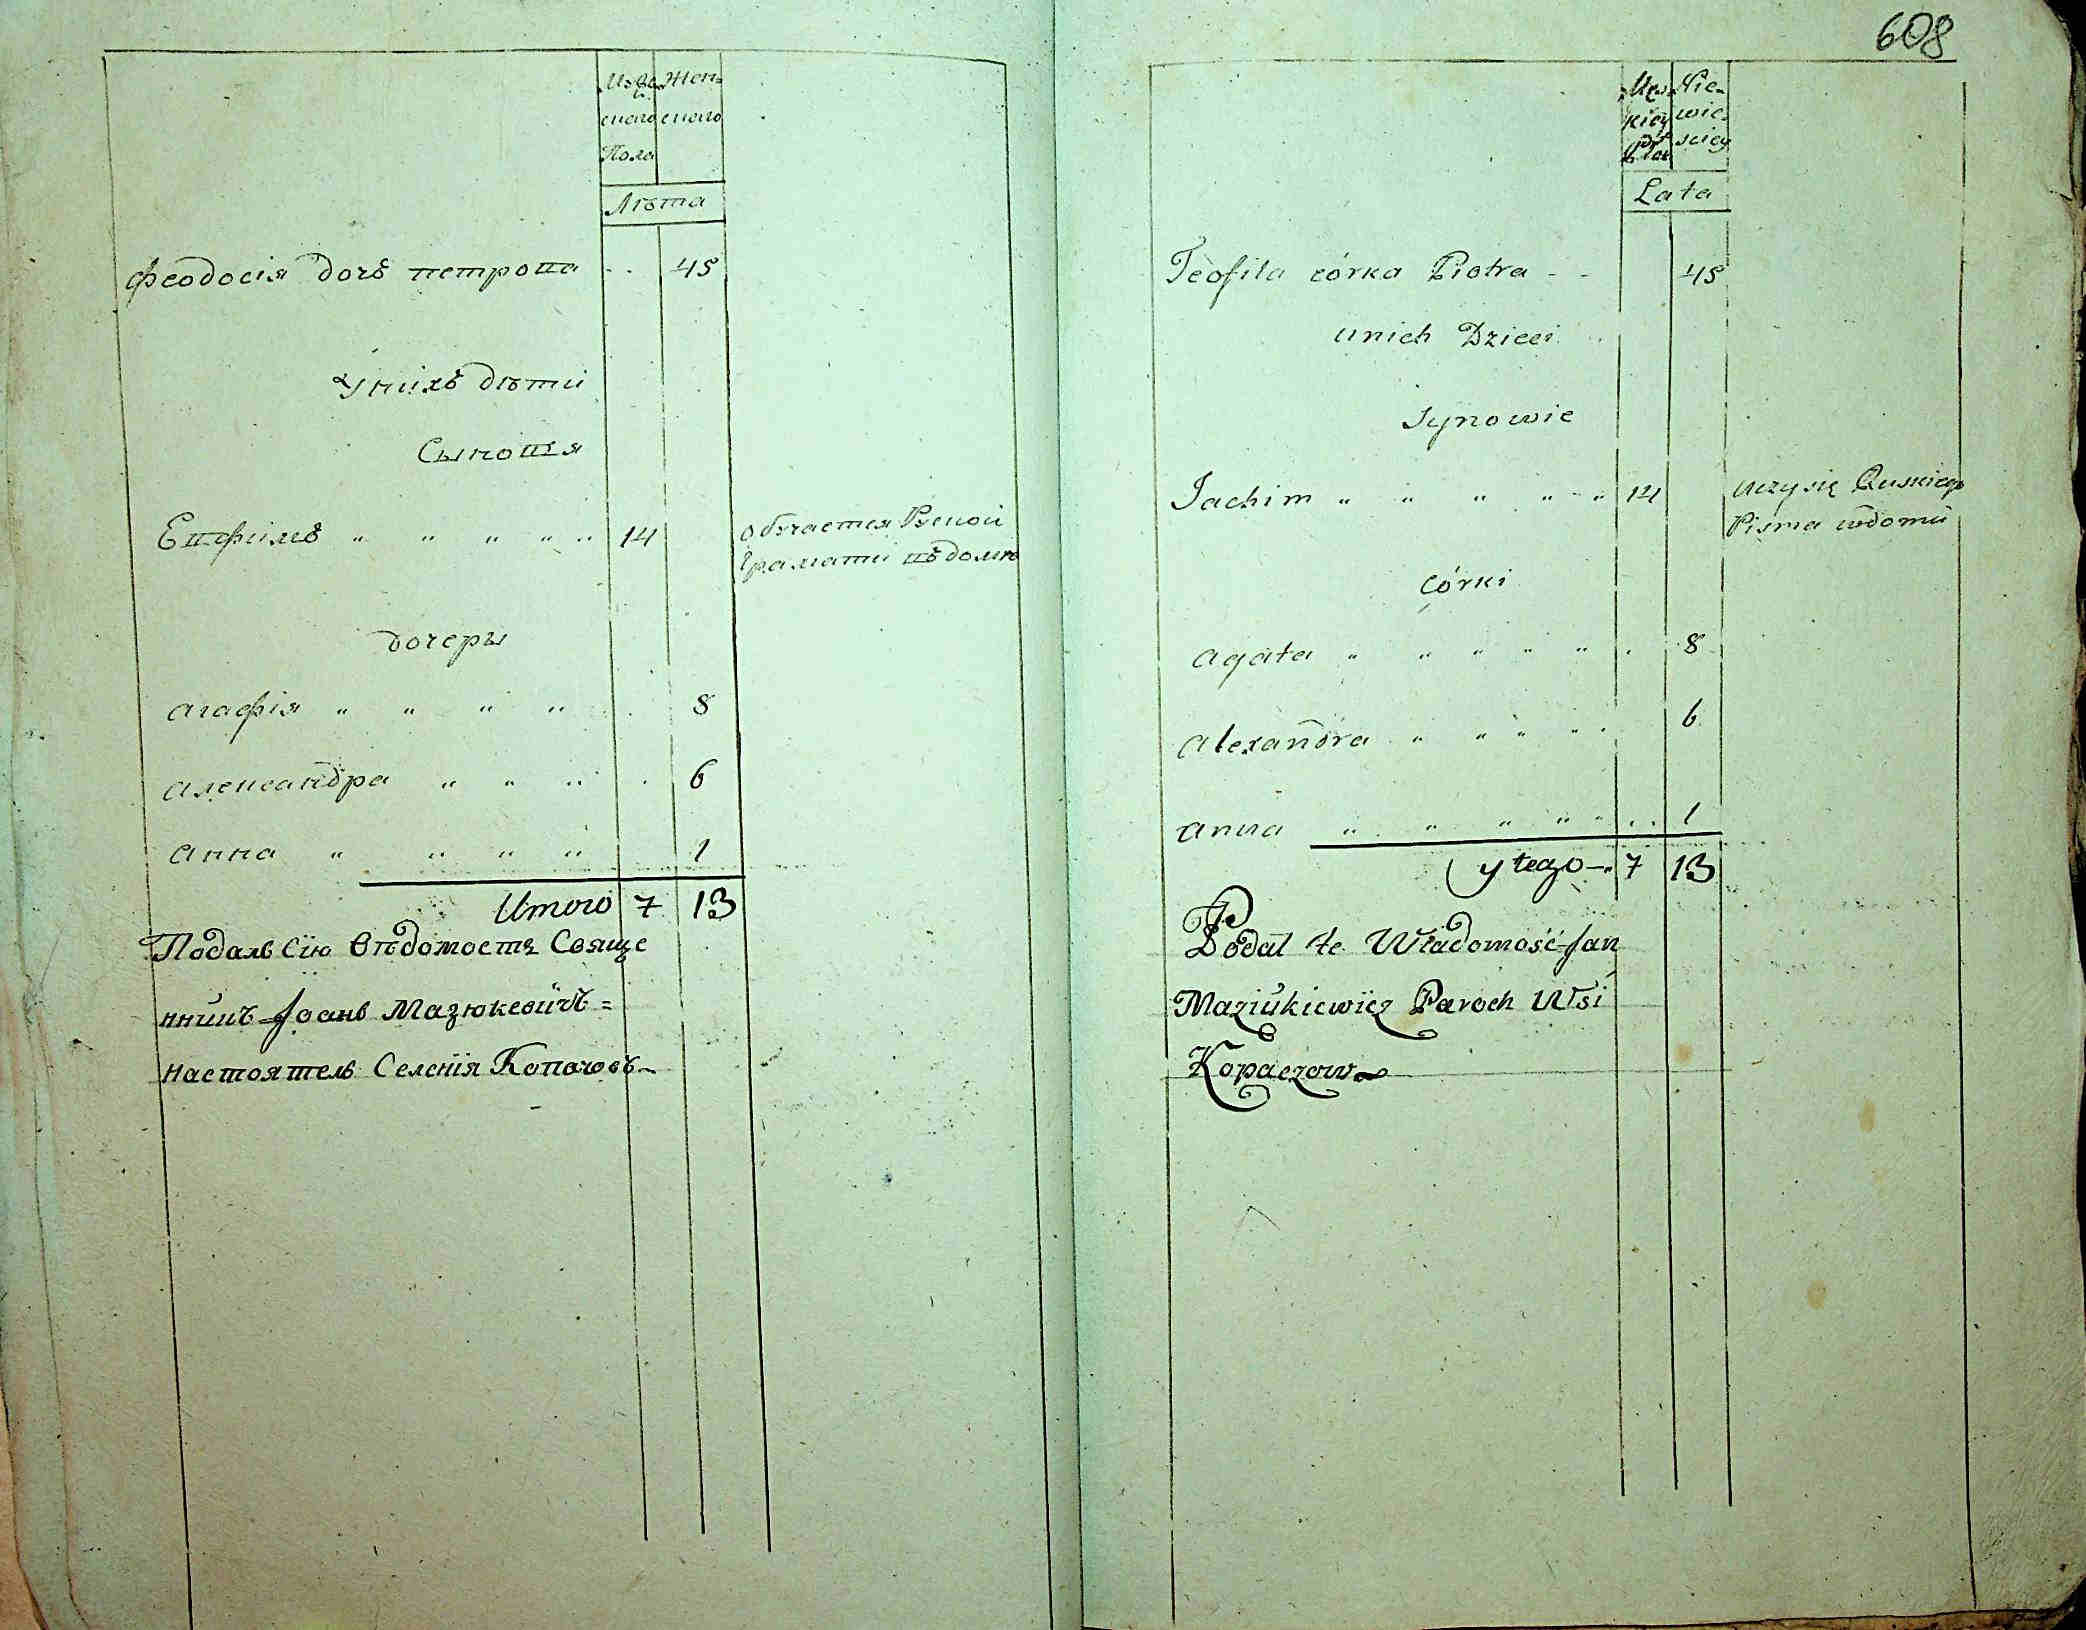 Мужe- Жен-
скаго скаго
Пола
Лѣта
Феодосія дочъ петрова 45
У нихъ дѣти
Сыновья
Евфимъ 14 обучается Руской
Граматы въ дому
дочеры
агафія 8
александра 6
анна 1
Итого 7 13
Подалъ Сїю Вѣдомостъ Свяще
нникъ Іоанъ Мазюкевичъ =
настоятель Селенїя Копачовъ
608
Męs- Nie-
kiey wie-
Płci sciey
Lata
Teofila córka Piotra - - 45
unich Dzieci
Synowie
Jachim 14 uczy się Ruskiego
Pisma wdomu
córki
agata 8
alexandra 6
anna 1
y tego 7 13
Podał te Wiadomość Jan
Maziukiewicz Paroch Wsi
Kopaczow